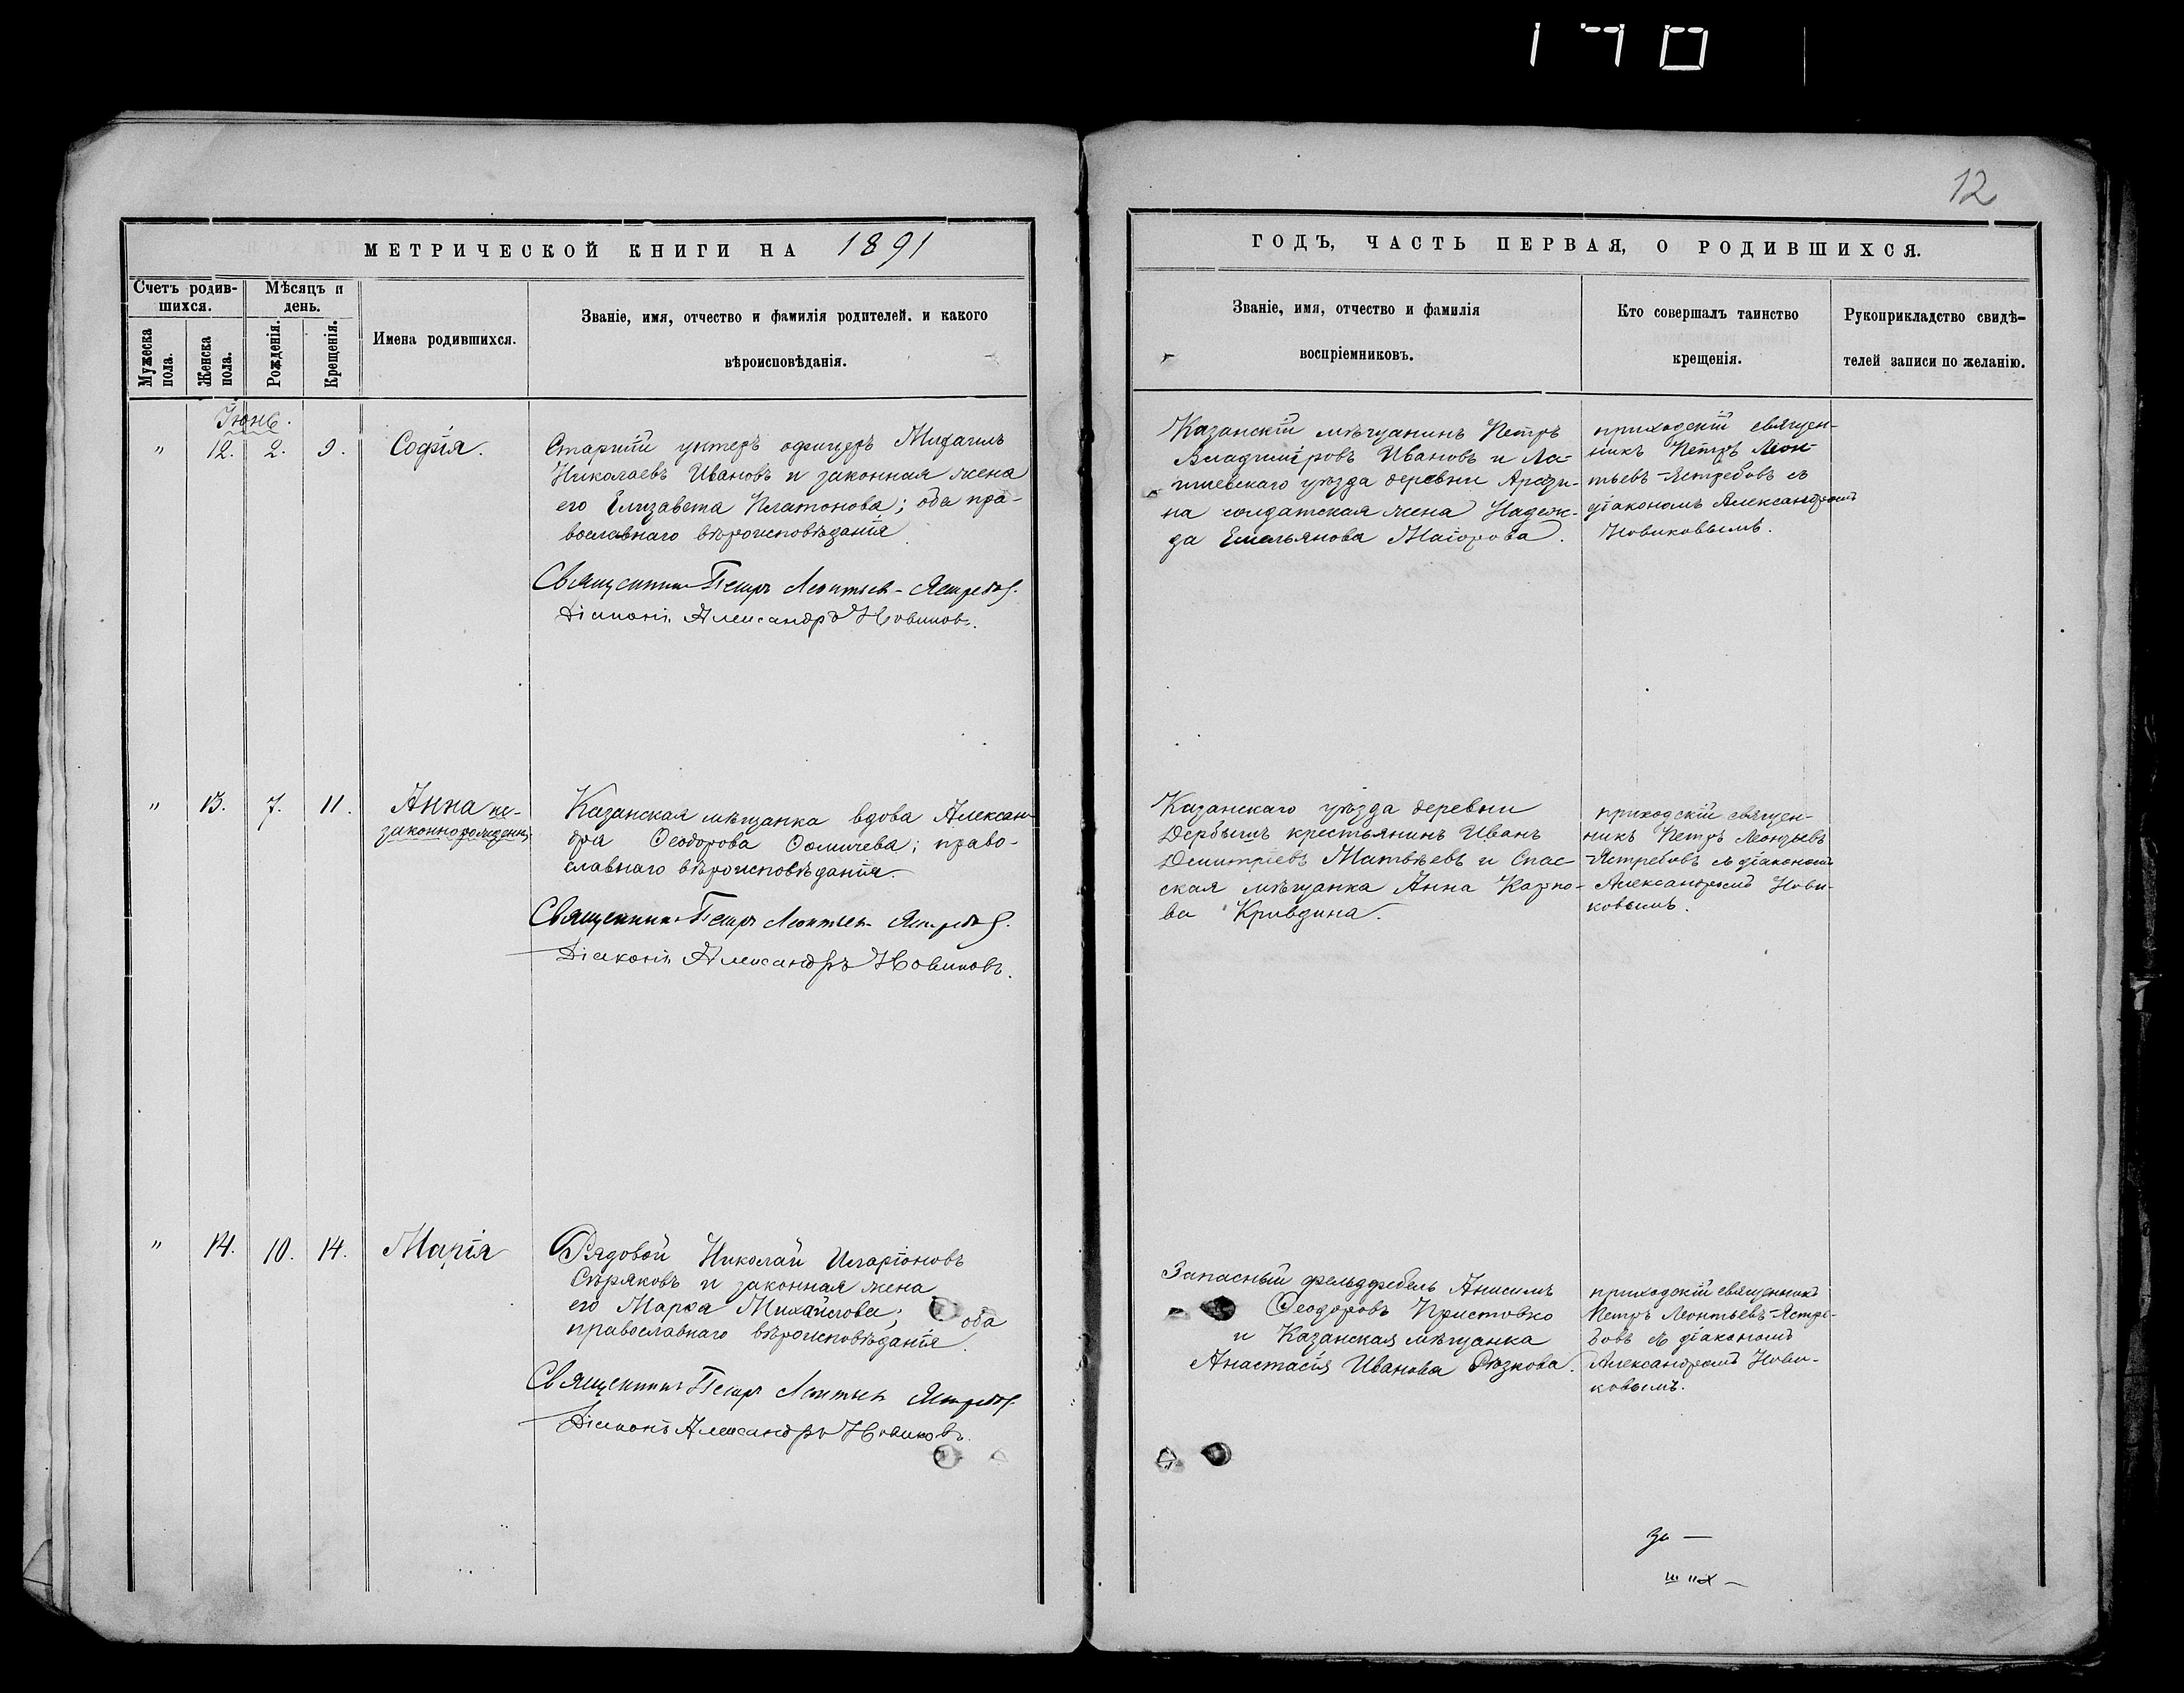 170
12
МЕТРИЧЕСКОЙ КНИГИ НА 1891
ГОДЪ, ЧАСТЬ ПЕРВАЯ, О РОДИВШИХСЯ.
Счетъ родив-
шихся.
Мѣсяцъ и
день.
Мужеска
пола.
Женска
пола.
Рожденія.
Крещенія.
Имена родившихся.
Званіе, имя, отчество и фамилія родителей. и какого
вѣроисповѣданія.
Званіе, имя, отчество и фамилія
воспріемниковъ.
Кто совершалъ таинство
крещенія.
Рукоприкладство свидѣ-
телей записи по желанію.
Іюнь.
" 12. 2. 9. Софія.
Старшій унтеръ офицеръ Михаилъ
Николаевъ Ивановъ и законная жена
его Елизавета Платонова; оба пра-
вославнаго вѣроисповѣданія.
Священникъ Петръ Леонтьев-Ястребов.
Діаконъ Александръ Новиковъ.
Казанскій мѣщанинъ Петръ
Владиміровъ Ивановъ и Ла-
ишевскаго уѣзда деревни
на солдатская жена Надеж-
да Емельянова Маіорова.
приходскій священ-
никъ Петръ Леон-
тьевъ-Ястребовъ съ
діакономъ Александромъ
Новиковымъ.
" 13. 7. 11. Анна не-
законнорожденн.
Казанская мѣщанка вдова Алексан-
дра Ѳеодорова Ѳомичева; право-
славнаго вѣроисповѣданія.
Священникъ Петръ Леонтьев Ястребов.
Діаконъ Александръ Новиковъ.
Казанскаго уѣзда деревни
Дербышъ крестьянинъ Иванъ
Димитріевъ Матвѣевъ и Спас
ская мѣщанка Анна Карпо-
ва Кривдина.
приходскій священ-
никъ Петръ Леонтьевъ
-Ястребовъ съ діакономъ
Александромъ Нови-
ковымъ.
" 14. 10. 14. Марія
Рядовой Николай Иларіоновъ
Сѣряковъ и законная жена
его Марѳа Михайлова; оба
православнаго вѣроисповѣданія.
Священникъ Петръ Леонтьев Ястребов.
Діаконъ Александръ Новиковъ.
Запасный фельдфебель Анисимъ
Ѳеодоровъ Пристовко
и Казанская мѣщанка
Анастасія Иванова
приходскій священникъ
Петръ Леонтьевъ-Ястре-
бовъ съ діакономъ
Александромъ Нови-
ковымъ.